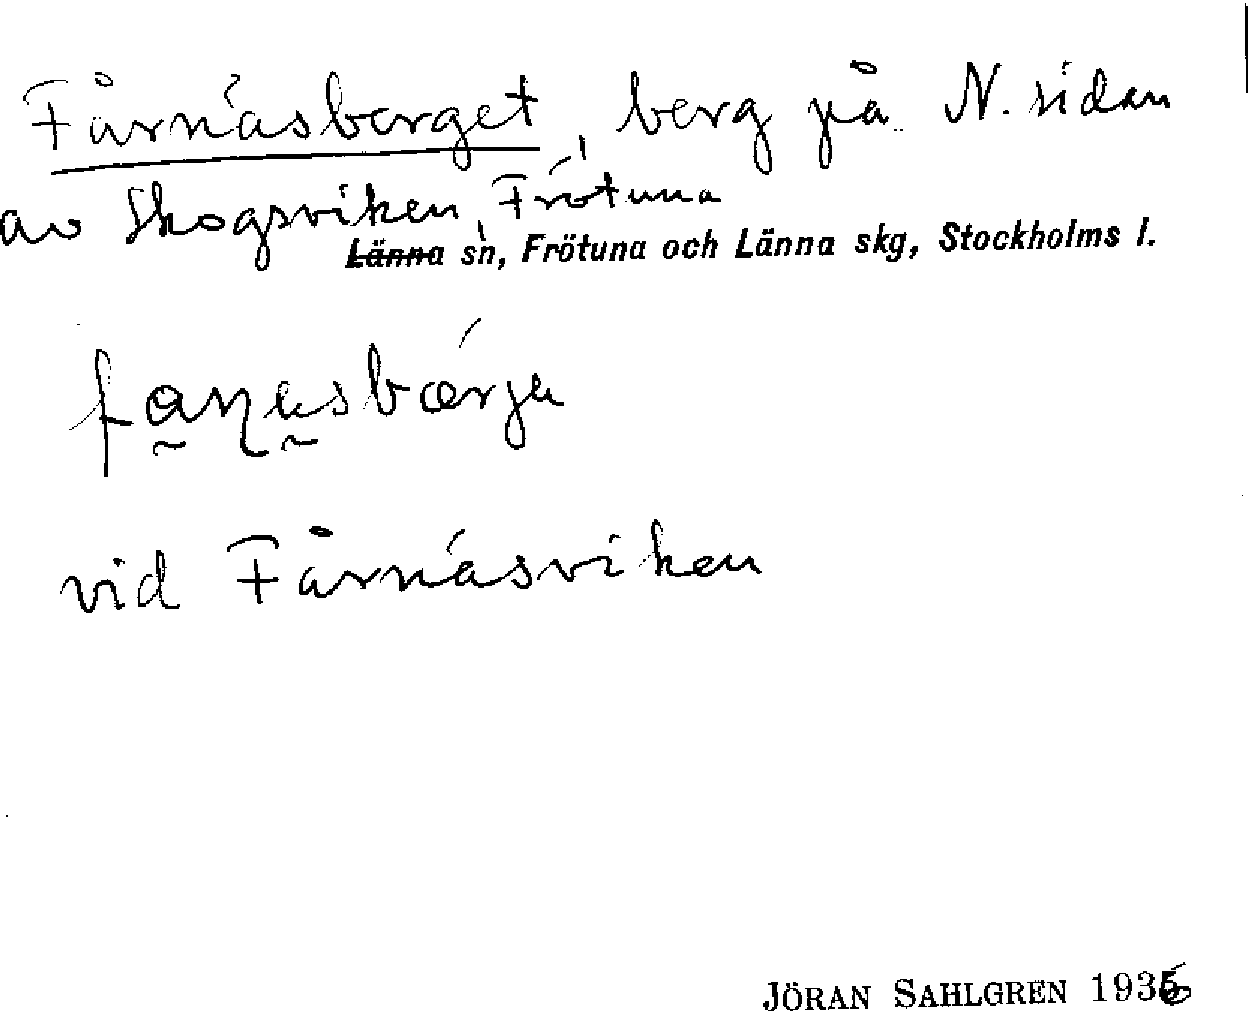 Fårnäsberget, berg på N. sidan
av Skogsviken, Frötuna
Länna sn, Frötuna och Länna skg, Stockholms l.
vid Fårnäsviken
JÖRAN SAHLGREN 1936